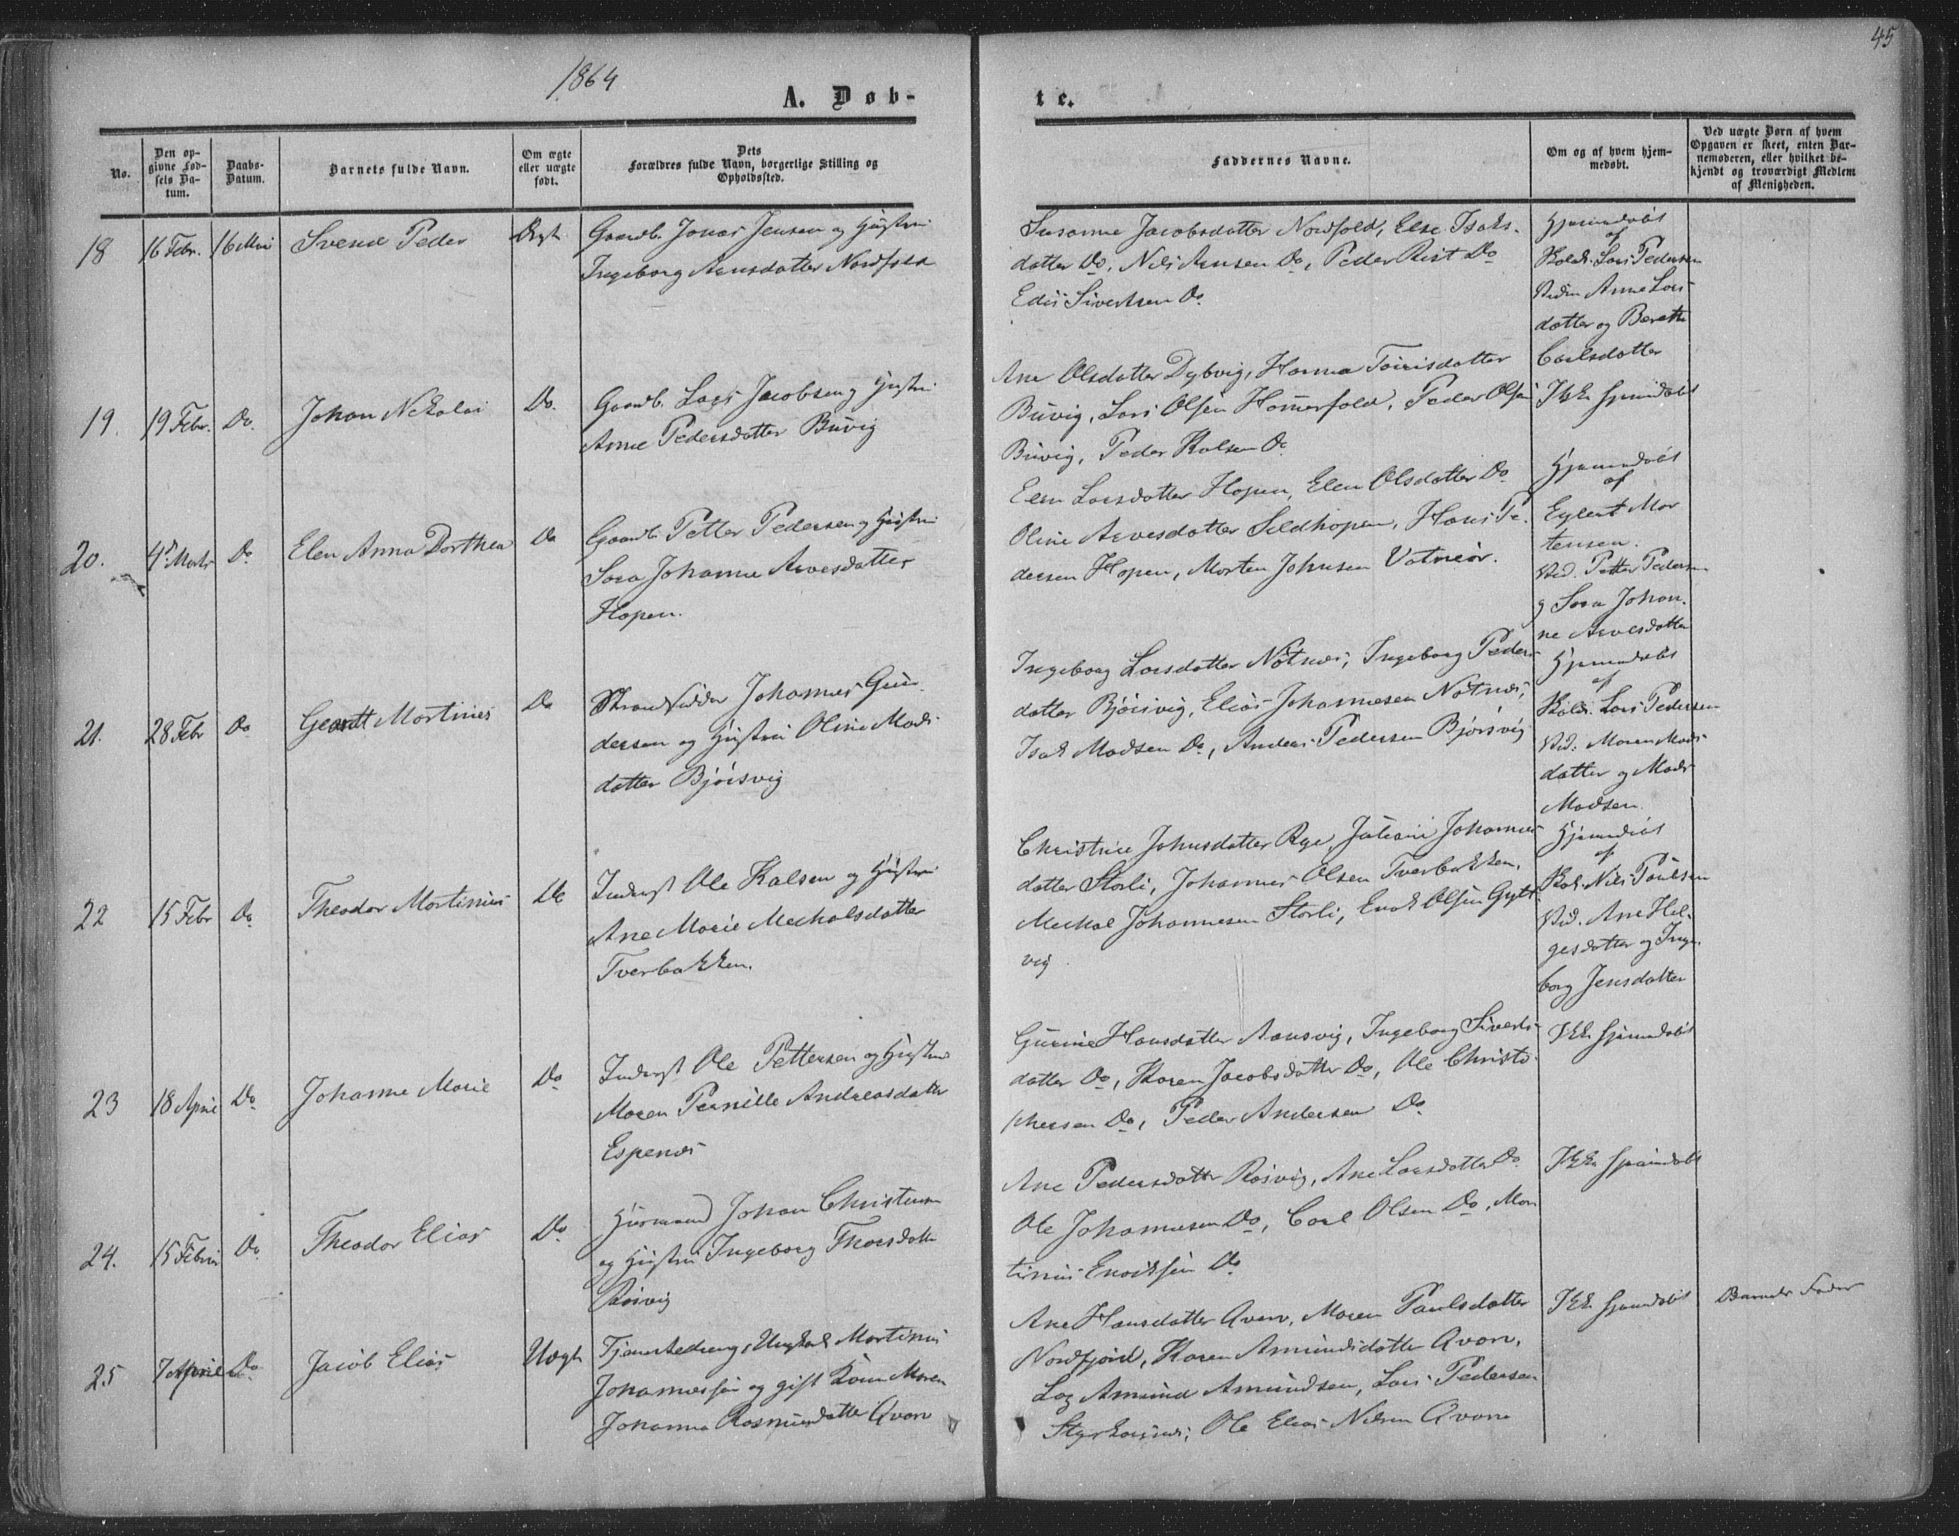 1864
45
A. Døb-
te.
No.
Den op-
givne Fød-
sels Da-
tum.
Daabs-
Datum.
Barnets fulde Navn.
Om ægte
eller uægte
født.
Dets
Forældres fulde Navn, borgerlige Stilling og
Opholdssted.
Faddernes Navne.
Om og af hvem hjem-
medøbt.
Ved uægte Børn af hvem
Opgaven er skeet, enten Bar-
nemoderen, eller hvilket be-
kjendt og troværdigt Medlem
af Menigheden.
18
16 Febr.
16 Mai
Svend Peder
Ægt
Gaardb. Jonas Jensen og Hustru
Ingeborg Arnsdatter Nordfold
Susanne Jacobsdatter Nordfold, Else Isaks-
datter Do, Nils Arnsen Do, Peder Rist Do
Edis Sivertsen Do
Hjemmedøbt
af
Lars Pedersen
Anne Lars
datter og Bereth
Carlsdatter
19.
19 Febr.
Do.
Johan Nekolai
Do.
Gaardb. Lars Jacobsen og Hustru
Anne Pedersdatter Buvig
Ane Olsdatter Dybvig, Hanna
Buvig, Lars Olsen Hamerfold, Peder Olsen
Buvig, Peder Kalsen Do
Ikke hjemdøbt
20.
4de Marts
Do
Elen Anna Dorthea
Do
Gaardb. Petter Pedersen og Hustru
Sara Johanne Arvesdatter
Hopen.
Elen Larsdatter Hopen, Elen Olsdatter Do
Oline Arvesdatter Seldhopen, Hans Pe-
dersen Hopen, Morten Johnsen Vatneør.
Hjemmedøbt
af
Eylert Mor
tensen.
Vid. Petter Pedersen
og Sara Johan-
ne Arvesdatter
21.
28 Febr
Do
Gerardt Mortinus
Do
Strandsidder Johannes Gun-
dersen og Hustru Oline Mads
datter Bjørsvig
Ingeborg Larsdatter Nøtnes, Ingeborg Peders
datter Bjørsvig, Elias Johannesen Nøtnes,
Isak Madsen Do, Anders Pedersen Bjørsvig
Hjemmedøbt
af
Lars Pedersen
Vid. Maren Mads
datter og Mads
Madsen.
22
15 Febr
Do
Theodor Mortinus
Do
Inderst Ole Kalsen og Hustru
Ane Marie Mechalsdatter
Tverbakken.
Christine Johnsdatter Rye, Juliane Johannes
datter Storli, Johannes Olsen Tverbakken,
Meckal Johannesen Storli, Enok Olsen Gylt
vig.
Hjemdøbt
af
Nils Paulsen
Vid. Ane Hel-
gesdatter og Inge-
borg Jensdatter
23
18 April
Do
Johanne Marie
Do
Inderst Ole Pettersen og Hustru
Maren Pernille Andreasdatter
Espenes
Gurine Hansdatter Aansvig, Ingeborg Siverts
datter Do, Karen Jacobsdatter Do, Ole Christo-
phersen Do, Peder Andersen Do
Ikke hjemdøbt
24.
15 Februar
Do
Theodor Elias
Do
Huusmand Johan Christensen
og Hustru Ingeborg Thorsdatter
Røsvig
Ane Pedersdatter Røsvig, Ane Larsdatter Do
Ole Johannesen Do, Carl Olsen Do, Mar
tinus Enoksen Do
Ikke hjemdøbt
25
7 April
Do
Jacob Elias
Uægt
Tjenestedreng, Ungkarl Mortinus
Johannessen og gift Kone Maren
Johanna Rasmusdatter Qvarv
Ane Hansdatter Qvarv, Maren Paulsdatter
Nordfjord, Karen Amundsdatter Qvarv,
Amund Amundsen, Lars Pedersen
Styrkesnes, Ole Elias Nilsen Qvarv
Ikke hjemdøbt
Barnets Fader